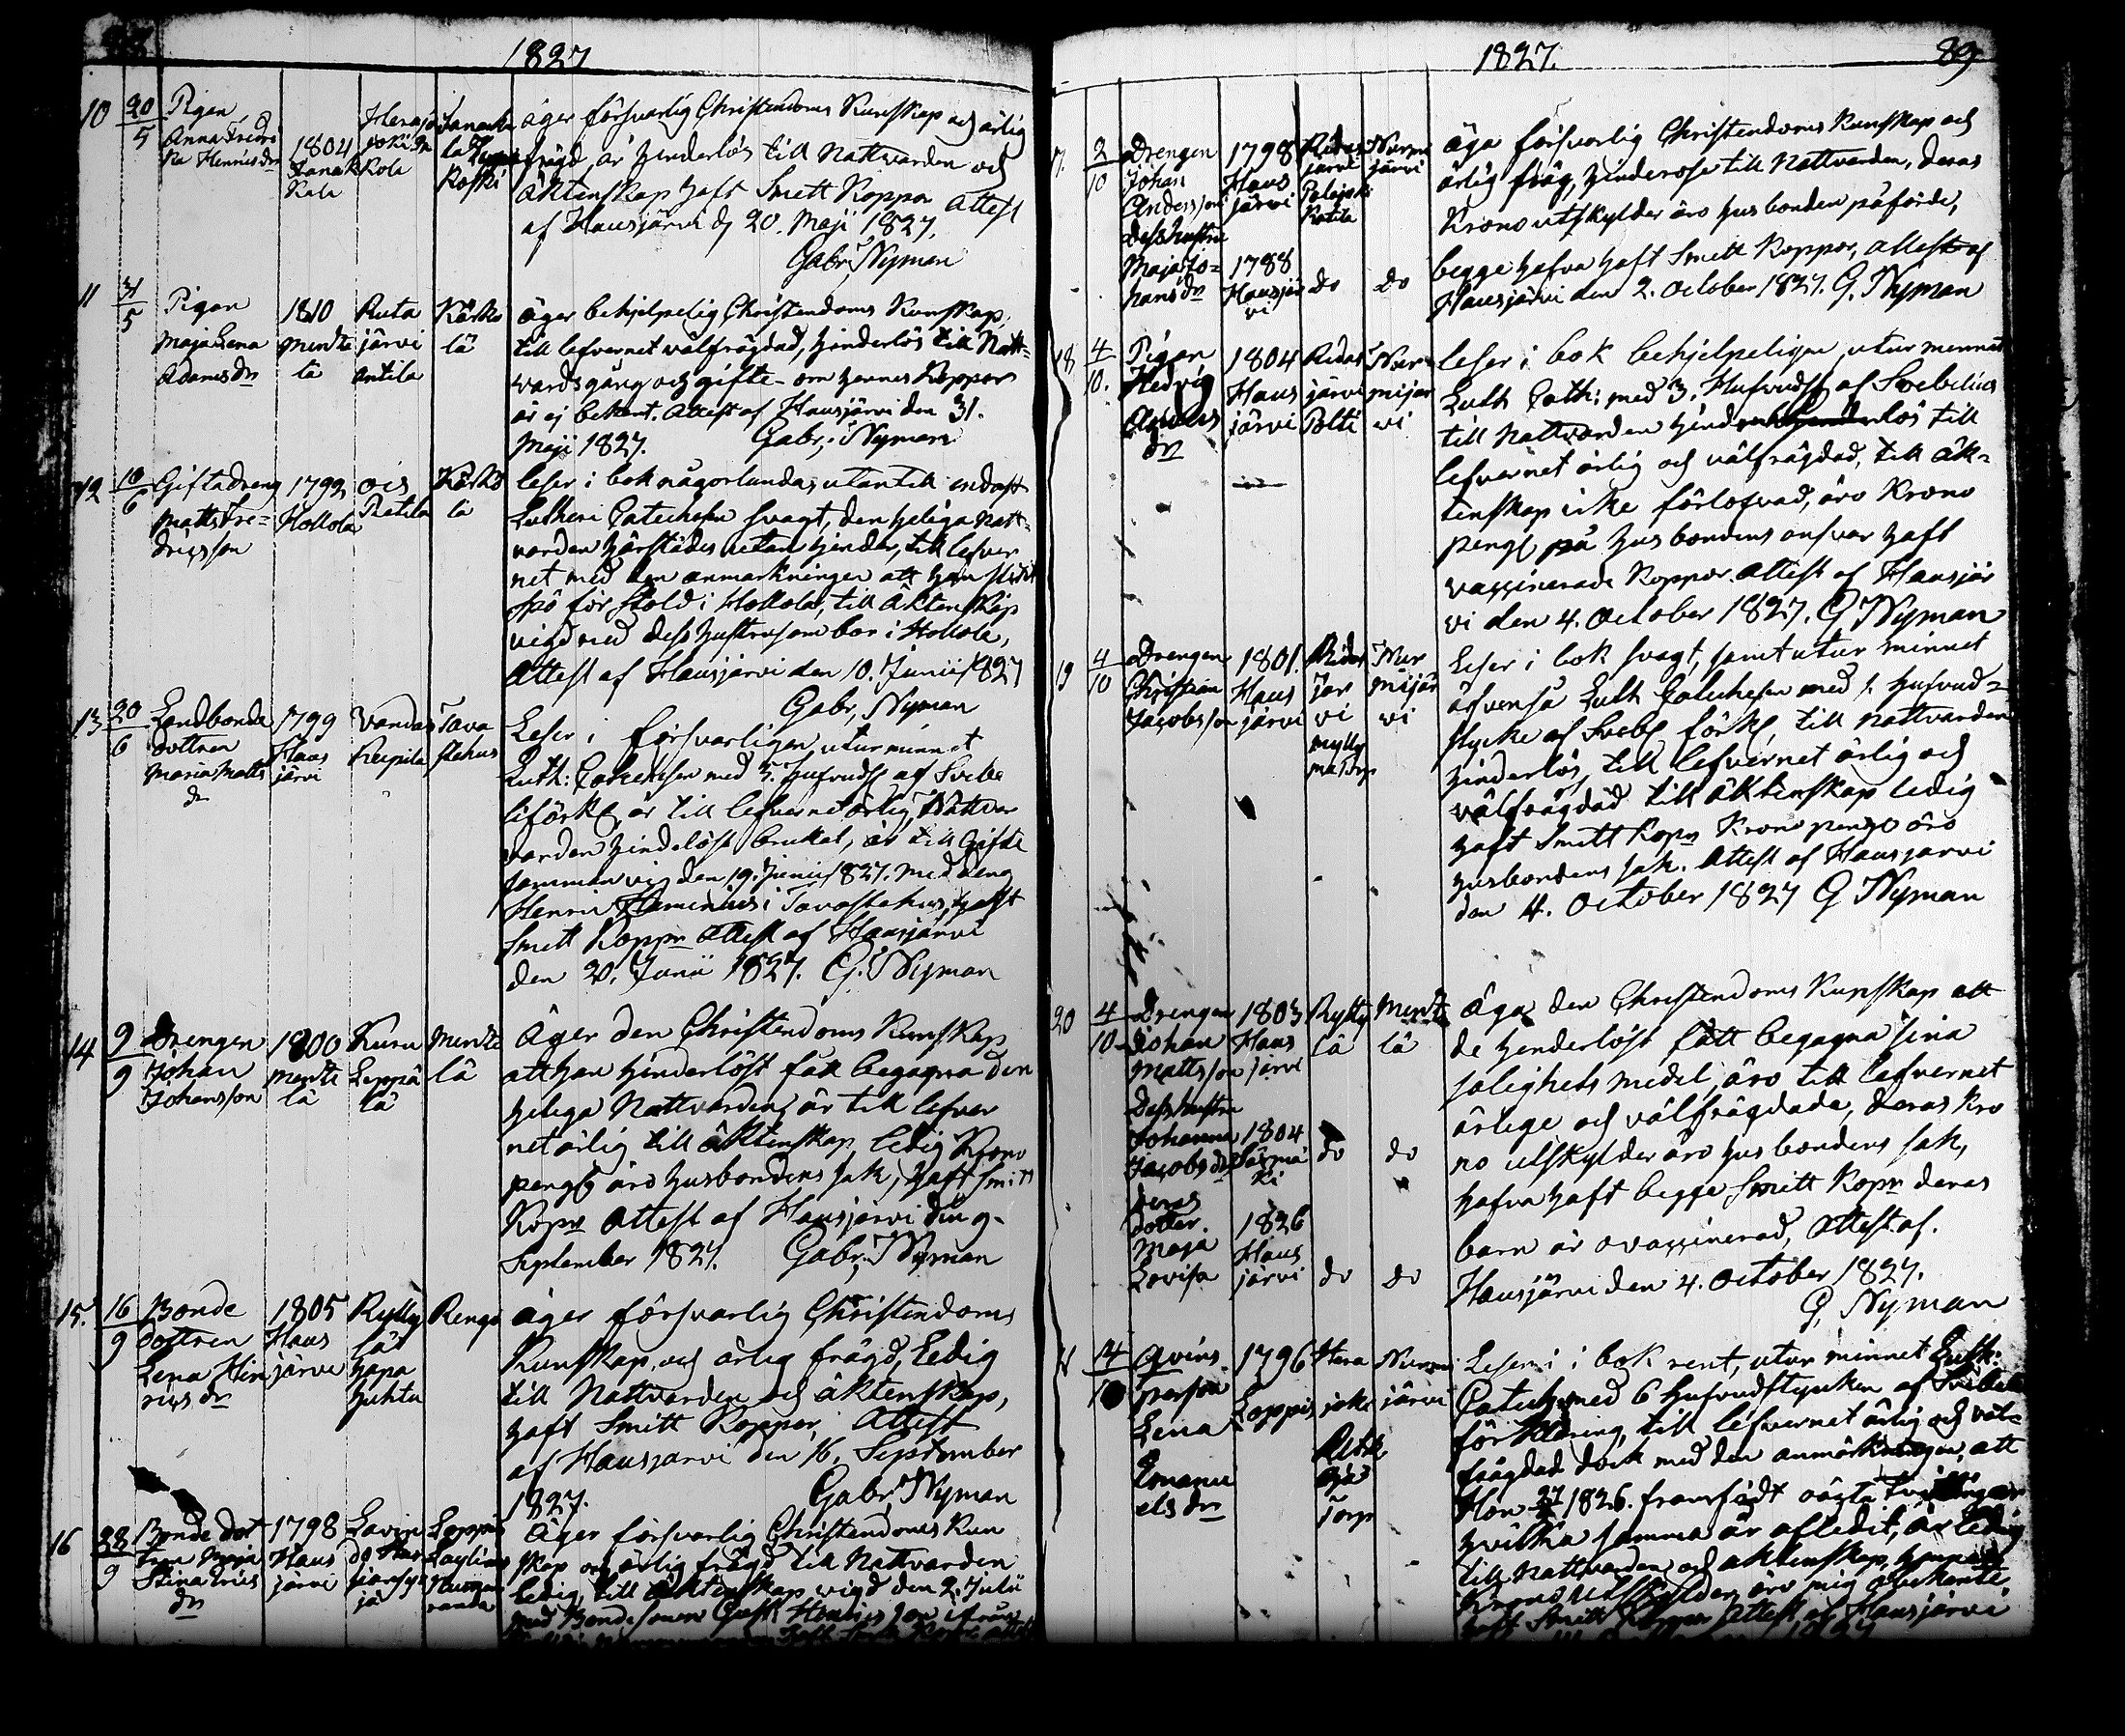 1827
10 20/5 Pigan
Anna Fredri
ka Henricsdr
1804
Janak
kala
Janacka
äger försvarlig Christendoms Kunskap och ärlig
frägd, är hinderlös till Nattvarden och
äktenskap haft Smitt Koppor Attest
af Hausjärvi d 20. Maji 1827.
Gabr, Nyman
11 31/5 Pigan
Maja Lena
Adamsdr
1810
Ments
lä
Ruta
järvi
Antila
Kärko
lä
äger behjelpelig Christendoms Kunskap,
till lefvernet välfrägdad, hinderlös till Natt-
vards gång och gifte - om hennes Koppor
är ej bekant. Attest af Hausjärvi den 31.
Maji 1827. Gabr, Nyman
12 10/6 Gifta dreng
Matts Fre-
dricsson
1792
Hollola
Ois
Kärko
lä
leser i bok någorlunda, utantill endast
Lutheri Catechesen svagt, den heliga Natt-
varden härstädes utan hinder, till lefver
net med den anmärkningen att han slitit
spö för Stöld i Hollola, till Äktenskap
vigd med dess hustru som bor i Hollola,
Attest af Hausjärvi den 10. Junii 1827
Gabr, Nyman
13 20/6 Landbonde
dottren
Maria Matts
dr
1799
Haus
järvi
Vandas
Keipila
Tava
stehus
Leser i försvarligen, utur minnet
Luth: Catechesen med 5. hufvudst af Svebe
li förkl, är till lefvernet ärlig, Nattvar
varden hinderlöst brukat, är till Gifte
samman vigd den 19. Junii 1827. med dreng
Henric Flaminius i Tavastehus, haft
Smitt Koppr Attest af Hausjärvi
den 20. Junii 1827. G. Nyman
14 9/9 Drengen
Johan
Johansson
1800
Ments
lä
Kuru
Leppä
lä
Ments
lä
Äger den Christendoms Kunskap
att han hinderlöst fått begagna den
heliga Nattvarden, är till lefver
net ärlig till äktenskap ledig Krono
pengr äro husbondens sak, haft Smitt
Kopr Attest af Hausjärvi den 9.
September 1827. Gabr, Nyman
15. 16/9 Bonde
dottren
Lena Hin
ricsdr
1805
Haus
järvi
Rytty
lä
hapa
huhta
Rengo
äger försvarlig Christendoms
Kunskap och ärlig frägd, Ledig
till Nattvarden och äktenskap,
haft Smitt Koppor, Attest
af Hausjärvi den 16. September
1827. Gabr, Nyman
16 28/9 Bonde dot
tren Maja
Stina Erics
dr
1798
Haus
järvi
Loppis
Läyliäis
äger försvarlig Christendoms Kun
skap och ärlig frägd till Nattvarden
ledig, till äktenskap vigd den 2. Julii
med Bondesonen Gust. Henricsson ifrån
1827. 89
17. 2/10 Drengen
Johan
Andersson
Dess hustru
Maja Jo-
hansdr
1798
Haus
järvi
1788
Hausjär
vi
Ridas
järvi
do
Nurmi
järvi
do
äga försvarlig Christendoms Kunskap och
ärlig fräg, hinderöse till Nattvarden, deras
Krono utskylder äro husbonden påförde,
begge hafva haft Smitt Koppor, attest af
Hausjärvi den 2. October 1827. G. Nyman
18. 4/10. Pigan
Hedvig
Anders
dr
1804
Haus
järvi
Ridas
järvi
Polti
Nur
mijär
vi
leser i bok behjelpeligen, utur minnet
Luth Cath: med 3. Hufvudst af Svebelius
till Nattvarden hinderlös till
lefvernet ärlig och välfrägdad, till äk-
tenskap icke förlofvad, äro Krono
pengr på husbondens ansvar haft
vaccinerade Koppor. Attest af Hausjär
vi den 4. October 1827. G Nyman
19 4/10 Drengen
Christian
Jacobsson
1801.
Haus
järvi
Ridas
jär
vi
mylly
mä torp
Nur
mijär
vi
Leser i bok svagt, samt utur minnet
äfvenså Luth Catechesen med 1. hufvud-
stycke af Svebs förkl, till Nattvarden
hinderlös, till lefvernet ärlig och
välfrägdad till äktenskap ledig
haft Smitt Kopr Krono pengr äro
husbondens sak. Attest af Hausjärvi
den 4. October 1827 G Nyman
20 4/10 Drengen
Johan
Mattsson
Dess hustru
Johanna
Jacobsdr
Deras
dotter.
Maja
Lovisa
1803
Haus
järvi
1804
1826
Haus
järvi
Rytty
lä
do
do
Ments
lä
do
do
Äga den Christendoms Kunskap att
de henderlöst fått begagna sina
salighets medel, äro till lefvernet
ärlige och välfrägdade, deras Kro
no utskylder äro husbondens sak,
hafva haft begge Smitt Kopr deras
barn är ovaccinerad, Attest af.
Hausjärvi den 4. October 1827.
G, Nyman
14/10 Qvins
person
Lena
Emanu
elsdr
1796
Loppis
Hera
joki
Torp
Nurmi
järvi
Leser i bok rent, utur minnet Luth:
Catech med 6 hufvudstycken af Svebeli
förklaring, till lefvernet ärlig och väl-
frägdad dock med den anmärkningen, att
Hon 1826. framfödt oägta tvillingar
hvilka samma är afledit, är ledig
till Nattvarden och äktenskap, hennes
Krono utskylder äro mig obekante,
haft Smitt Koppor Attest af Hausjärvi